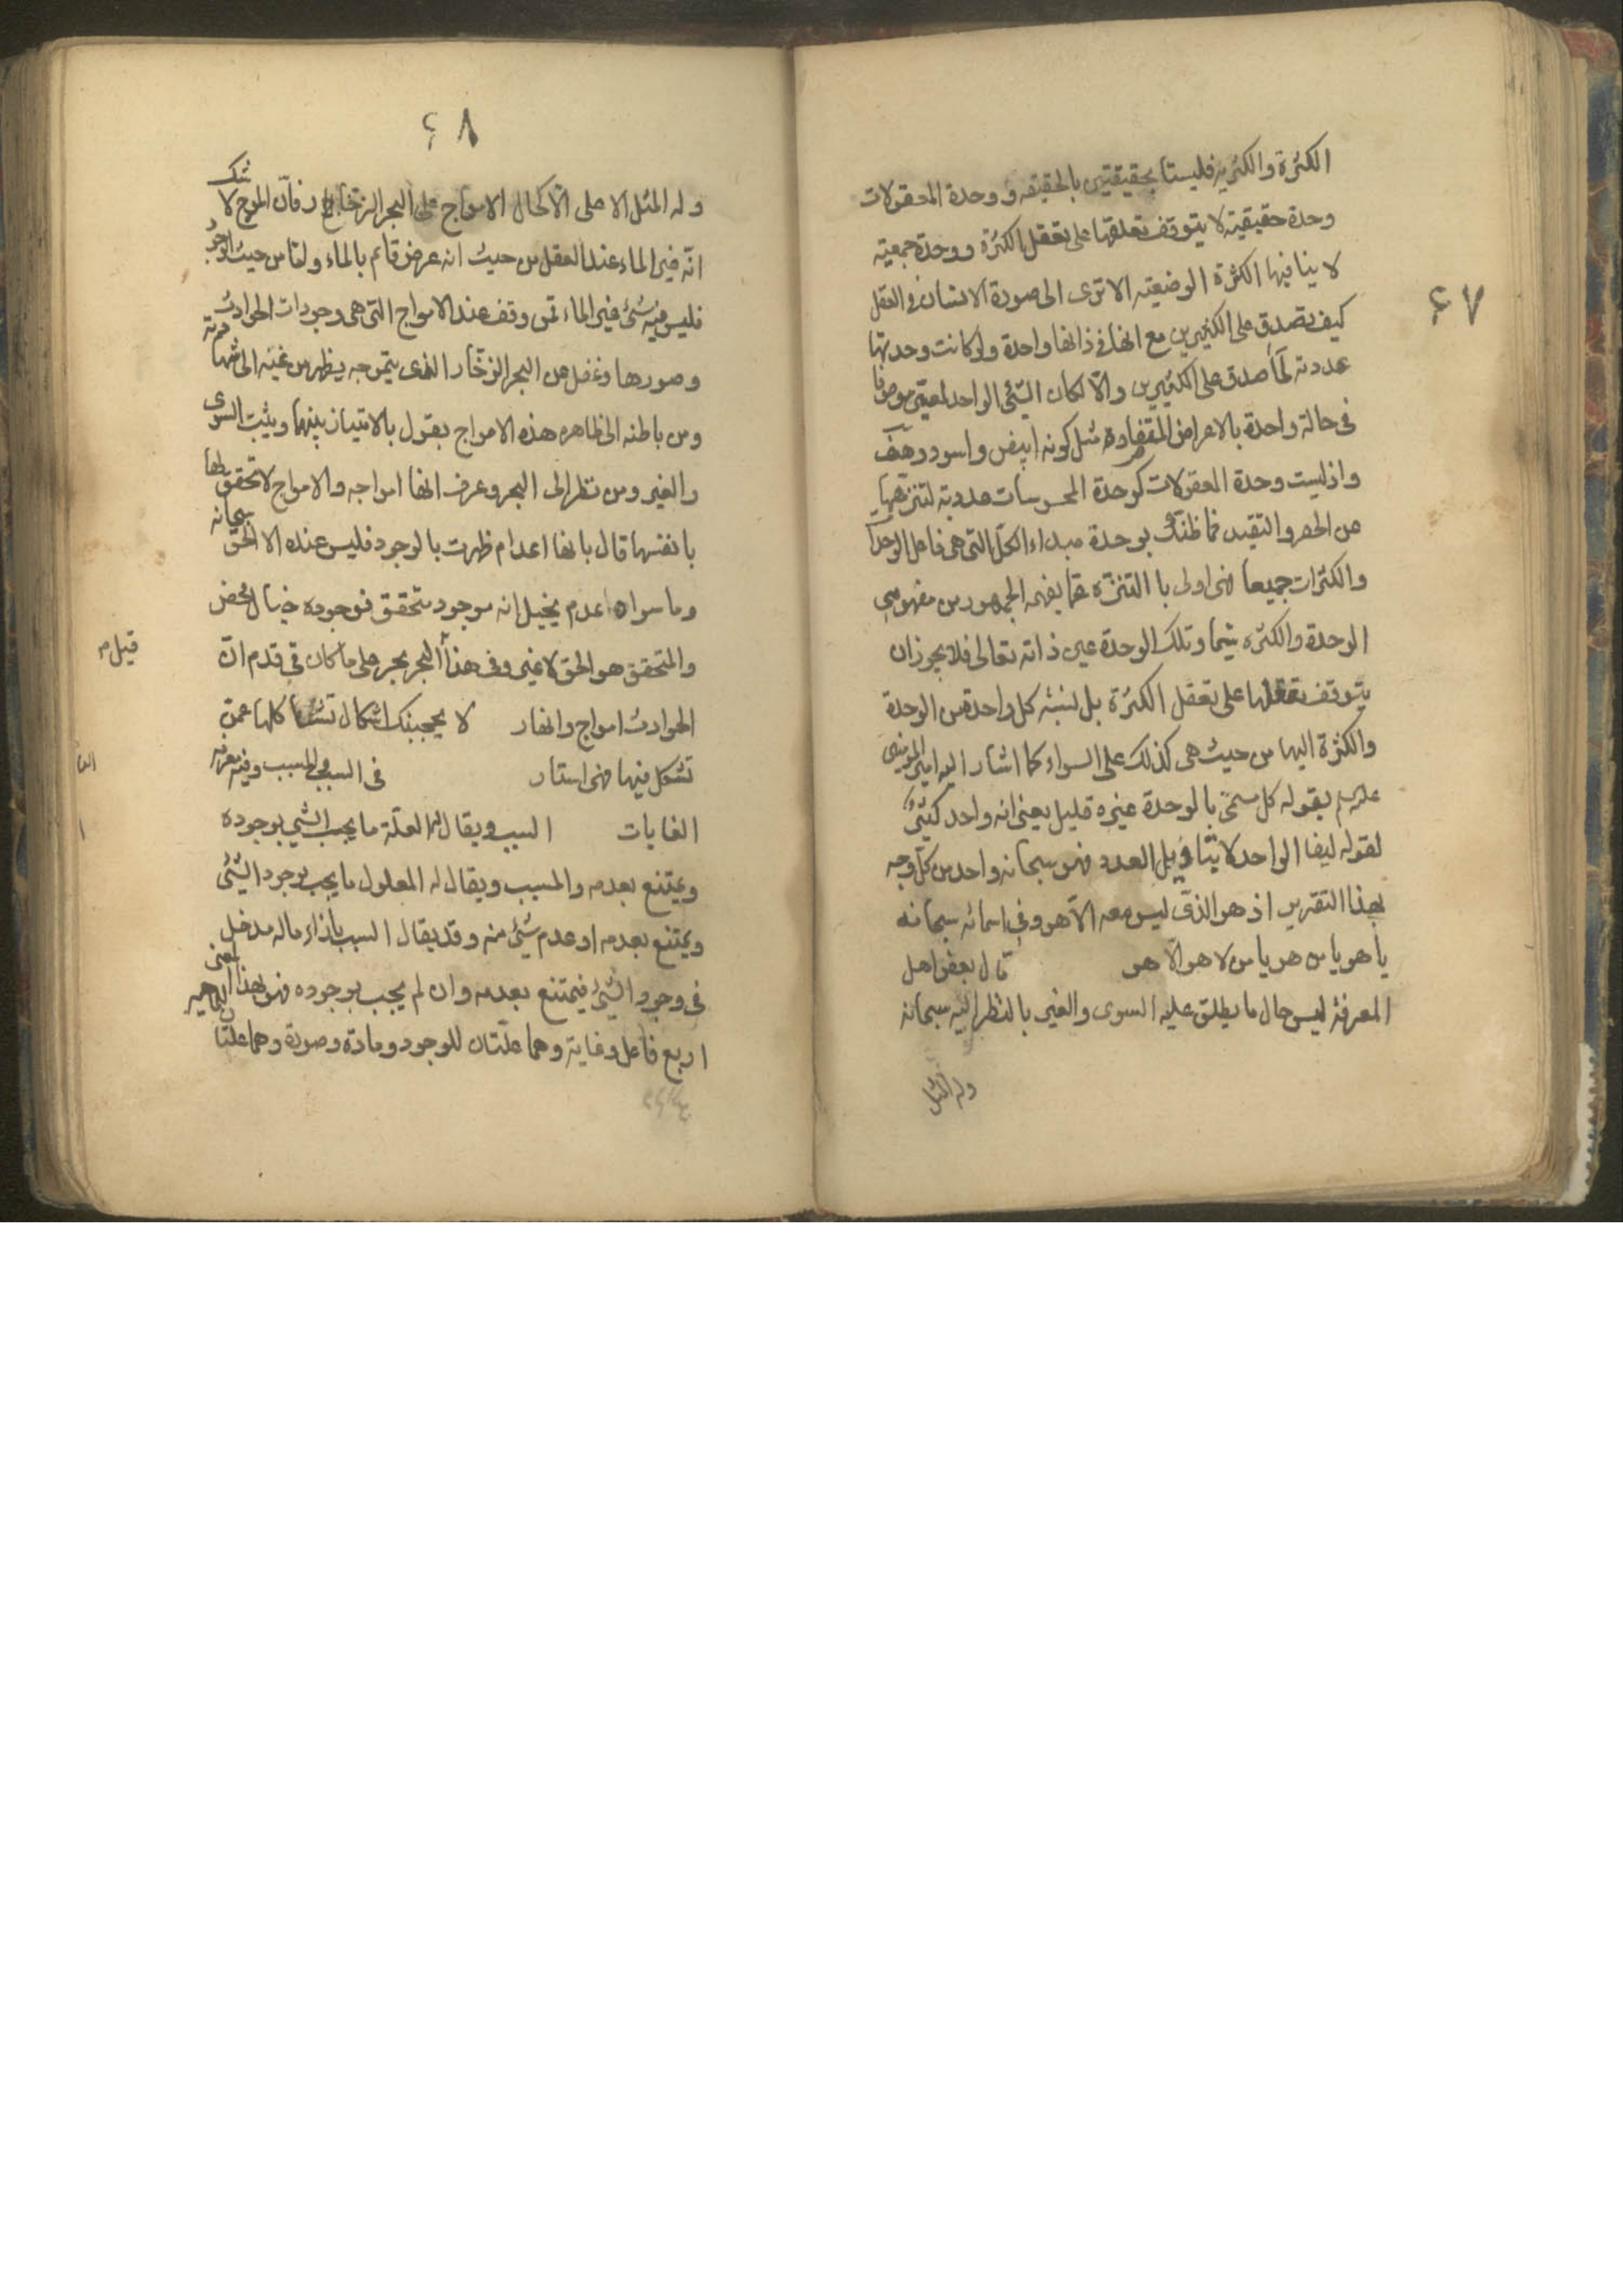 ٤٧
الكثرة والكثرية فليستا بحقيقيتين بالحقيقة ووحدة المعقولات
وحدة حقيقية لا يتوقف تعلقها على تعقل الكثرة ووحدة جمعية
لا ينافيها الكثرة الوضعية الا ترى الى صورة الانسان في العقل
كيف تصدق على الكثيرين مع انها في ذاتها واحدة ولو كانت وحدتها
عددية لما صدق على الكثيرين والا لكان الشئ الواحد لمعين موصوفا
في حالة واحدة بالاعراض المتضادة مثل كونه ابيض واسود وهف
واذ ليست وحدة المعقولات كوحدة المحسوسات عددية لتنزهها
عن الحصر والتقيد فما ظنك بوحدة مبداء الكل التي هي فاعل الوحدات
والكثرات جميعا فهي اولى با التنزه عما يفهمه الجمهور من مفهومي
الوحدة والكثرة سيما وتلك الوحدة عين ذاته تعالى فلا يجوز ان
يتوقف تعقلها على تعقل الكثرة بل نسبة كل واحدة من الوحدة
والكثرة اليها من حيث هي كذلك على السواء كما اشار اليه امير المؤمنين
عليه السلم بقوله كل مسمى بالوحدة غيره قليل يعني انه واحد كثير
لقوله ايضا الواحد لا بتاويل العدد فهو سبحانه واحد من كل وجه
بهذا التقرير اذ هو الذي ليس معه الا هو وفي اسمائه سبحانه
يا هو يا من هو يا من لا هو الا هو قال بعض اهل
المعرفة ليس حال ما يطلق عليه السوى والغير بالنظر اليه سبحانه
وله المثل
٤٨
وله المثل الا على الا كحال الامواج على البحر الزخار فان الموج لا شك
انه غير الماء عند العقل من حيث انه عرض قائم بالماء واما من حيث الوجود
فليس فيه شئ غير الماء فمن وقف عند الامواج التي هي وجودات الحوادث
وصورها وغفل عن البحر الزخار الذي بتموجه يظهر من غيبه الى شهادته
ومن باطنه الى ظاهره هذه الامواج يقول بالامتياز بينهما ويثبت السوى
والغير ومن نظر الى البحر وعرف انها امواجه والامواج لا تحقق لها
بانفسها قال بانها اعدام ظهرت بالوجود فليس عنده الا الحق سبحانه
وما سواه عدم يخيل انه موجود متحقق فوجوده خيال محض
والمتحقق هو الحق لا غير وفي هذا البحر بحر على ما كان في قدم ان
قيل
الحوادث امواج وانهار لا يحجبنك اشكال تشاكلها عمن
تشكل فيها فهي استار في السبب والمسبب وفيه معرفة
الغايات السبب ويقال له العلة ما يجب الشئ بوجوده
ويمتنع بعدمه والمسبب ويقال له المعلول ما يجب بوجود الشئ
ويمتنع بعدمه او عدم شئ منه وقد يقال السبب بازاء ما له مدخل
في وجود الشئ فيمتنع بعدمه وان لم يجب بوجوده فهو بهذا المعنى
اربع فاعل وغاية وهما علتان للوجود ومادة وصورة وهما علتا الماهية